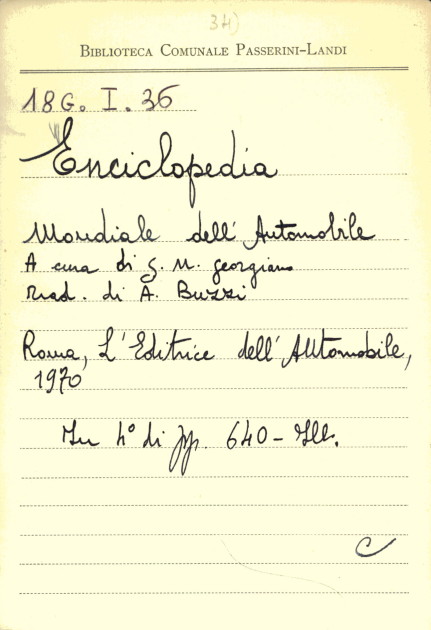 34)
BIBLIOTECA COMUNALE PASSERINI-LANDI
18G. I. 36
Enciclopedia
Mondiale dell' Automobile
A cura di G. N. Georgiano
Trad. di A. Buzzi
Roma, L'Editrice dell'Automobile,
1970
In 4° di pp. 640 - Ill.
C